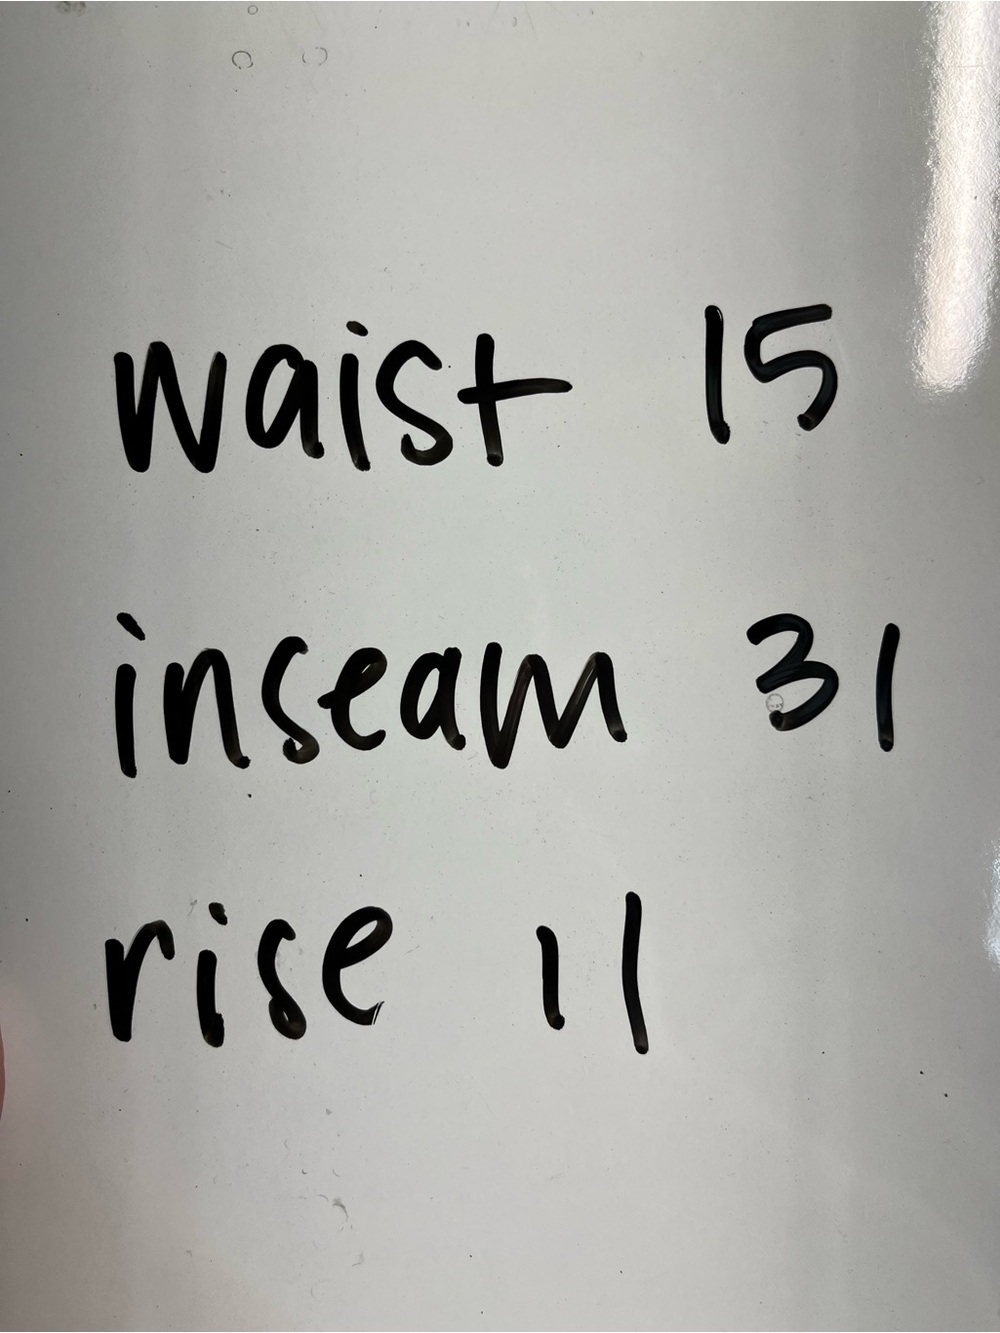 waist 15
inseam 31
rise 11